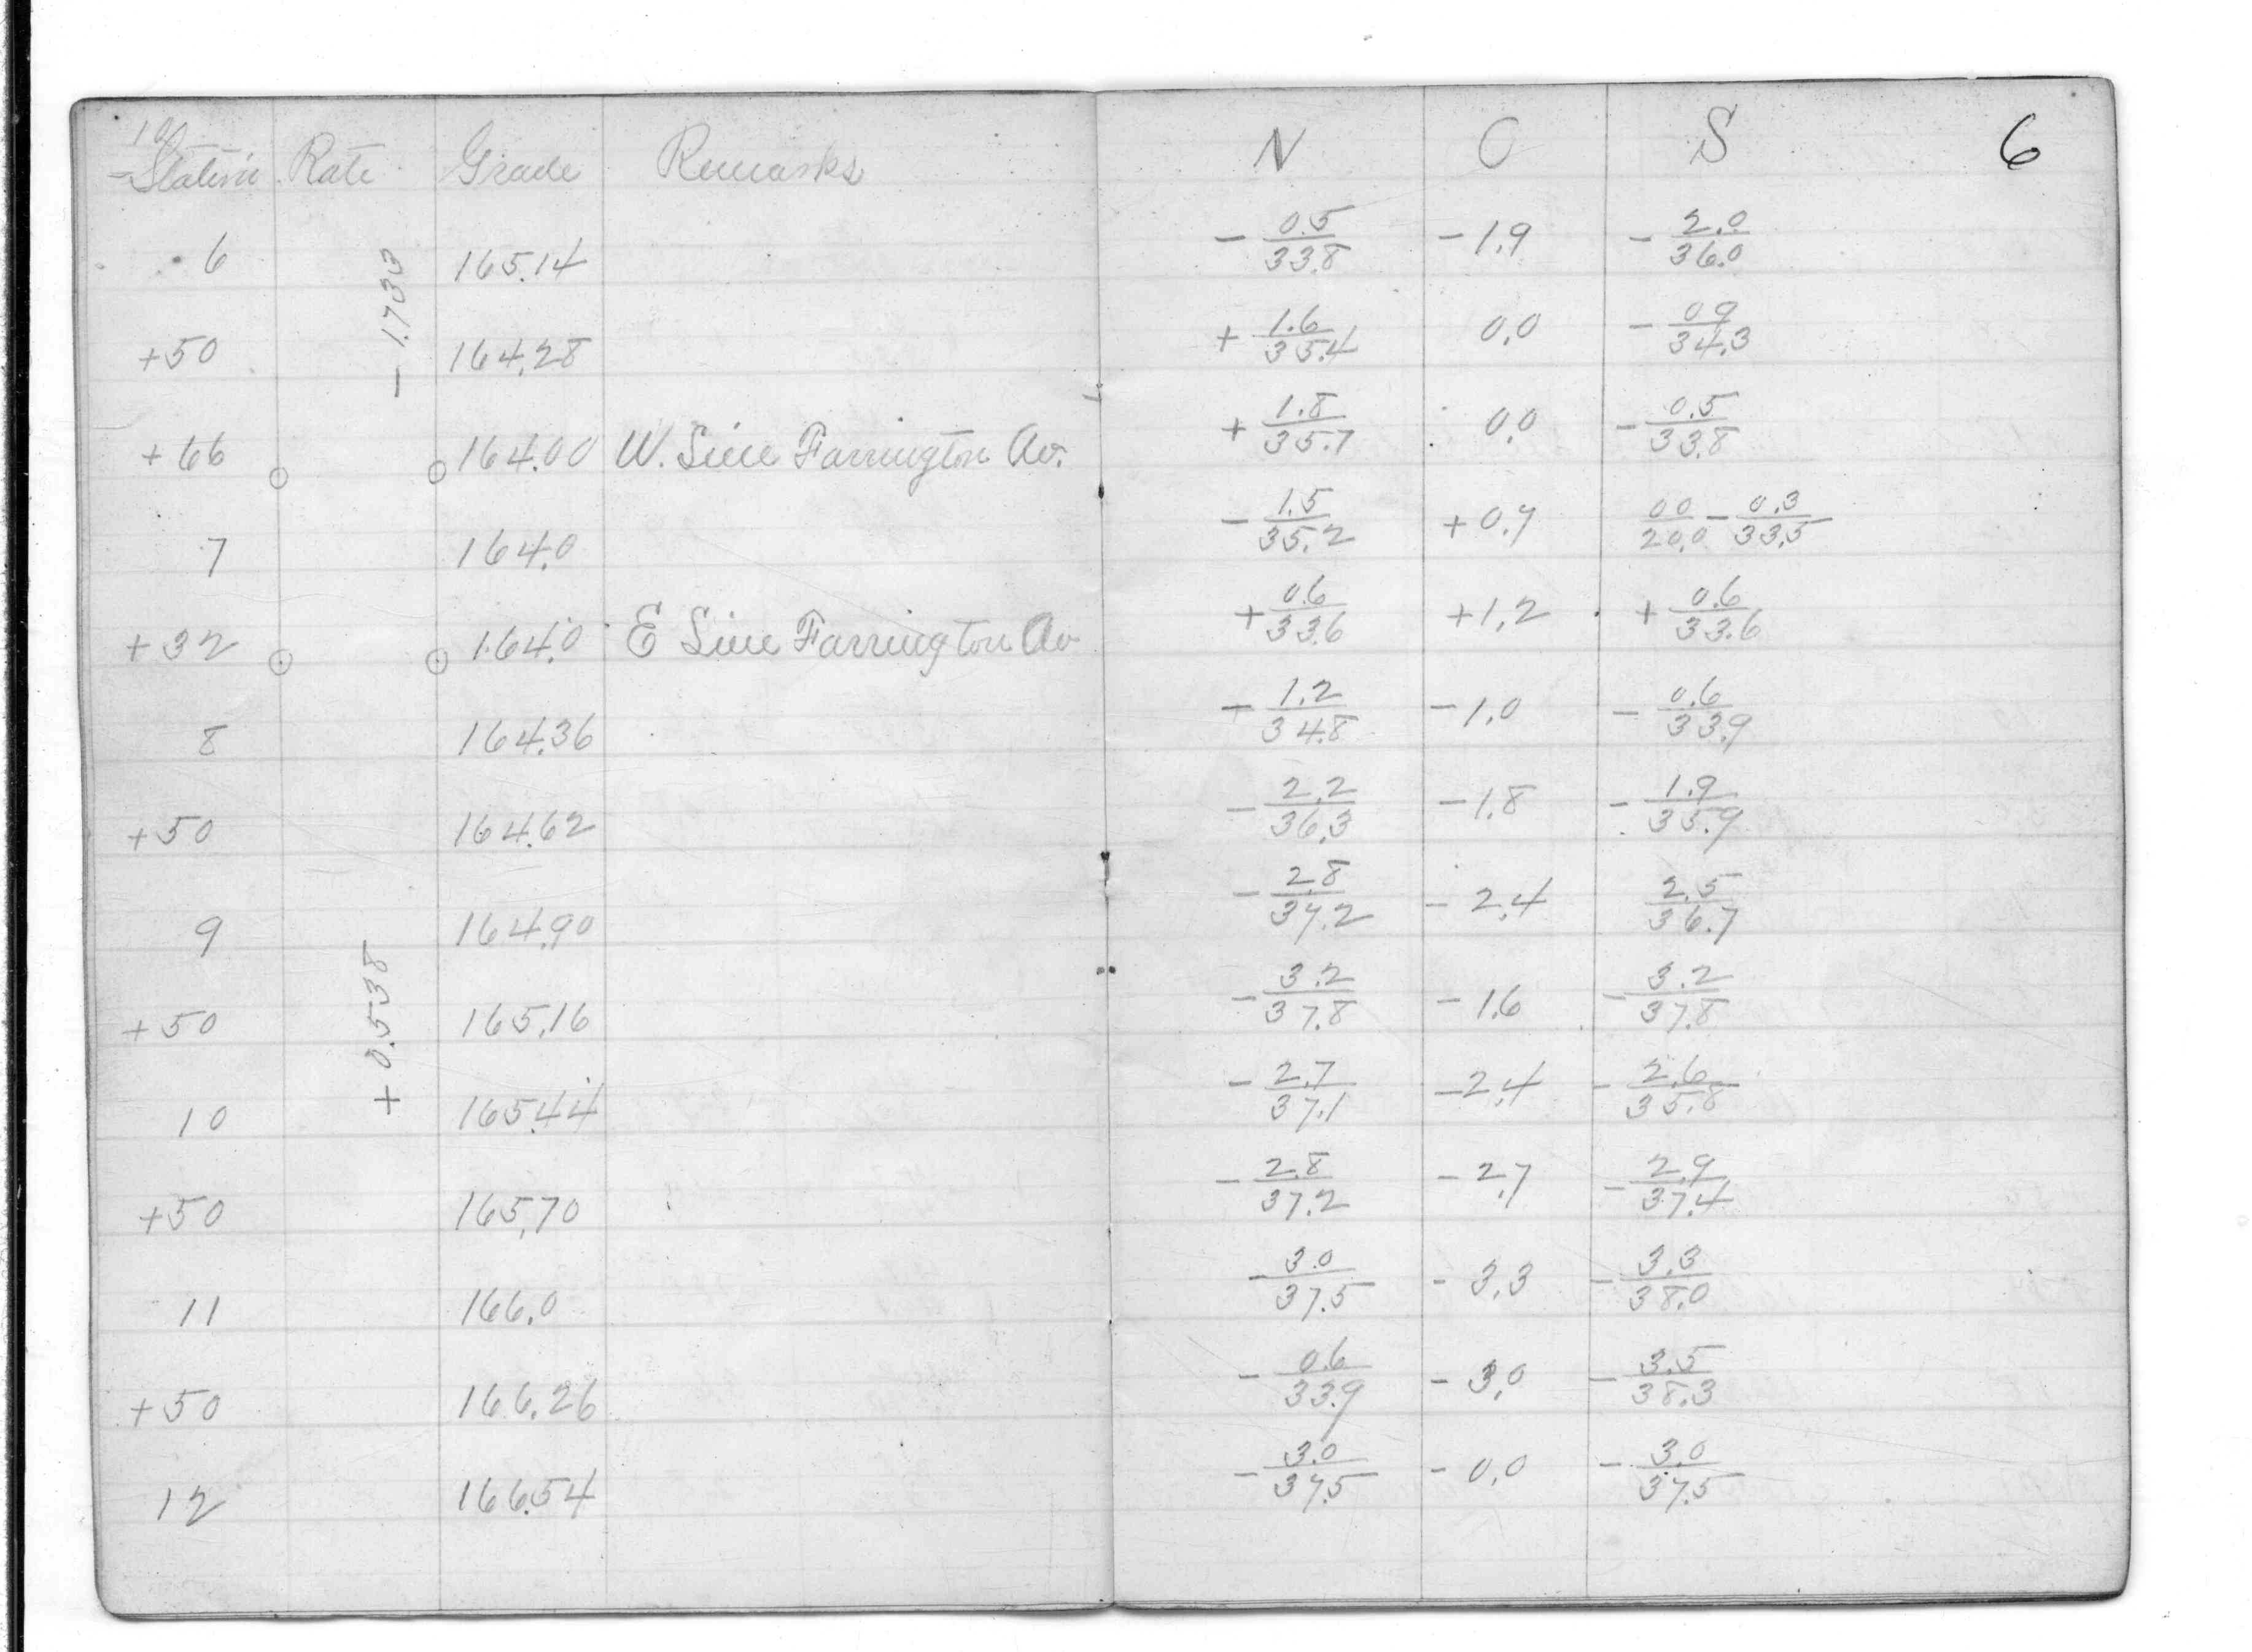 10
Station Rate Grade Remarks N C S 6
6 165.14 - 0.5/33.8 - 1.9 - 2.0/36.0
- 1.733
+50 164.28 + 1.6/35.4 0.0 - 0.9/34.3
+66 164.00 W. Line Farrington Av. + 1.8/35.7 0.0 - 0.5/33.8
7 164.0 - 1.5/35.2 + 0.7 00/20.0 - 0.3/33.5
+32 164.0 E Line Farrington Av + 0.6/33.6 + 1.2 + 0.6/33.6
8 164.36 - 1.2/34.8 - 1.0 - 0.6/33.9
+50 164.62 - 2.2/36.3 - 1.8 - 1.9/35.9
9 164.90 - 2.8/37.2 - 2.4 2.5/36.7
+ 0.538
+50 165.16 - 3.2/37.8 - 1.6 - 3.2/37.8
10 165.44 - 2.7/37.1 - 2.4 - 2.6/35.8
+50 165.70 - 2.8/37.2 - 2.7 - 2.9/37.4
11 166.0 - 3.0/37.5 - 3.3 - 3.3/38.0
+50 166.26 - 0.6/33.9 - 3.0 - 3.5/38.3
12 166.54 - 3.0/37.5 - 0.0 - 3.0/37.5